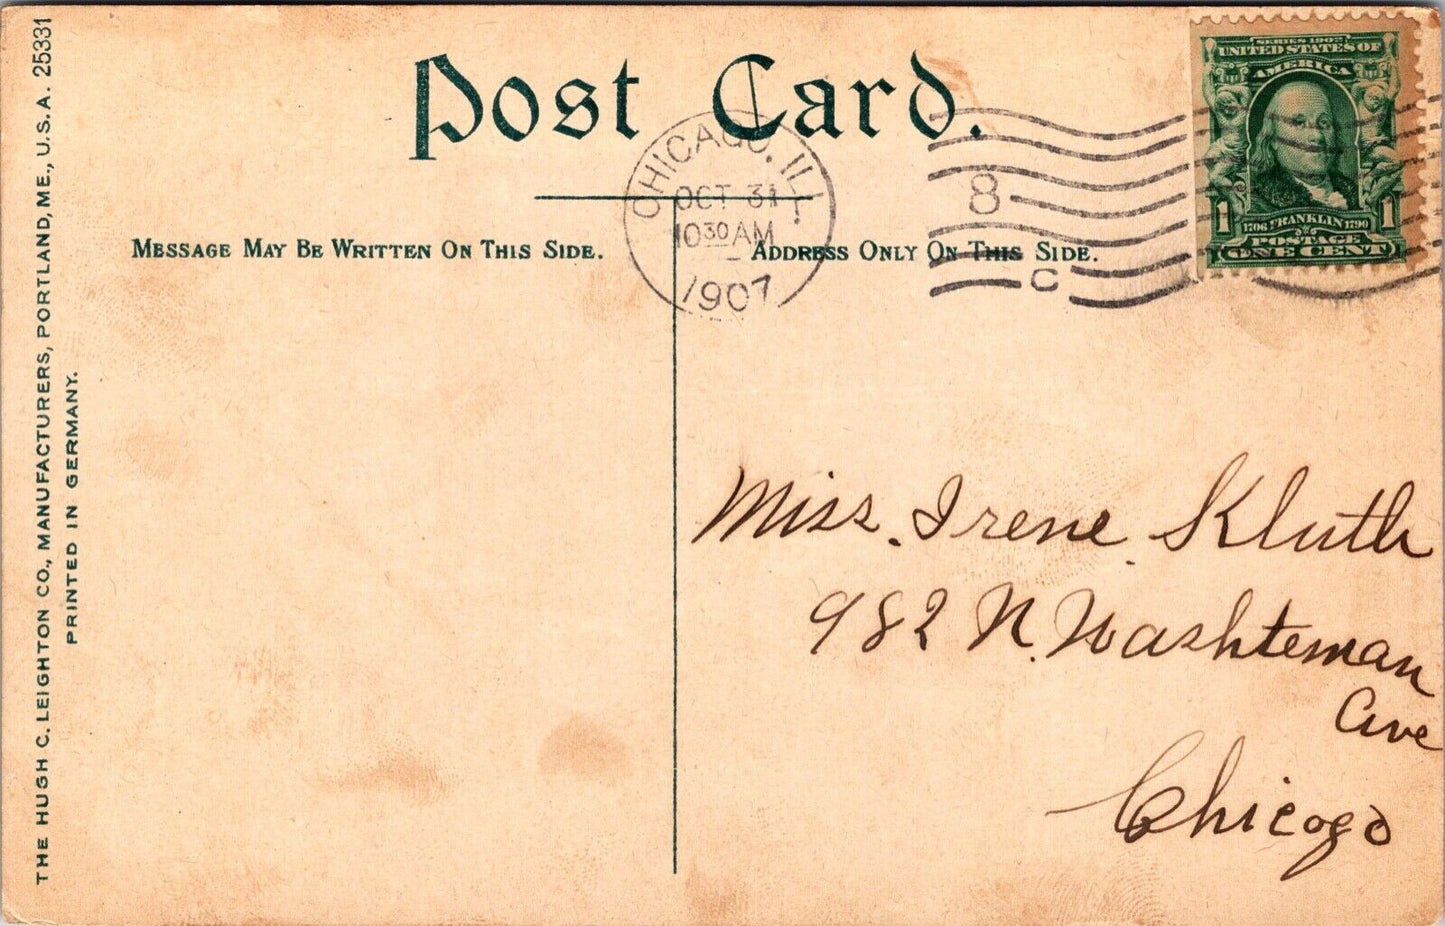 THE HUGH C. LEIGHTON CO., MANUFACTURERS, PORTLAND, ME., U.S.A. 25331
PRINTED IN GERMANY.
Post Card.
MESSAGE MAY BE WRITTEN ON THIS SIDE.
ADDRESS ONLY ON THIS SIDE.
CHICAGO, ILL.
OCT 31
1030 AM
1907
8
C
SERIES 1902
UNITED STATES OF
AMERICA
1 1
1706 FRANKLIN 1790
POSTAGE
ONE CENT
Miss. Irene Kluth
982 N. Washteman
Ave
Chicogo